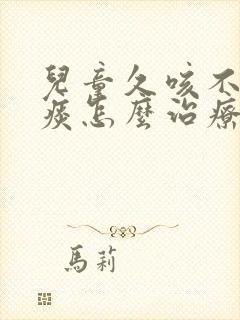 兒童久咳不
痰怎麼治療
馬莉